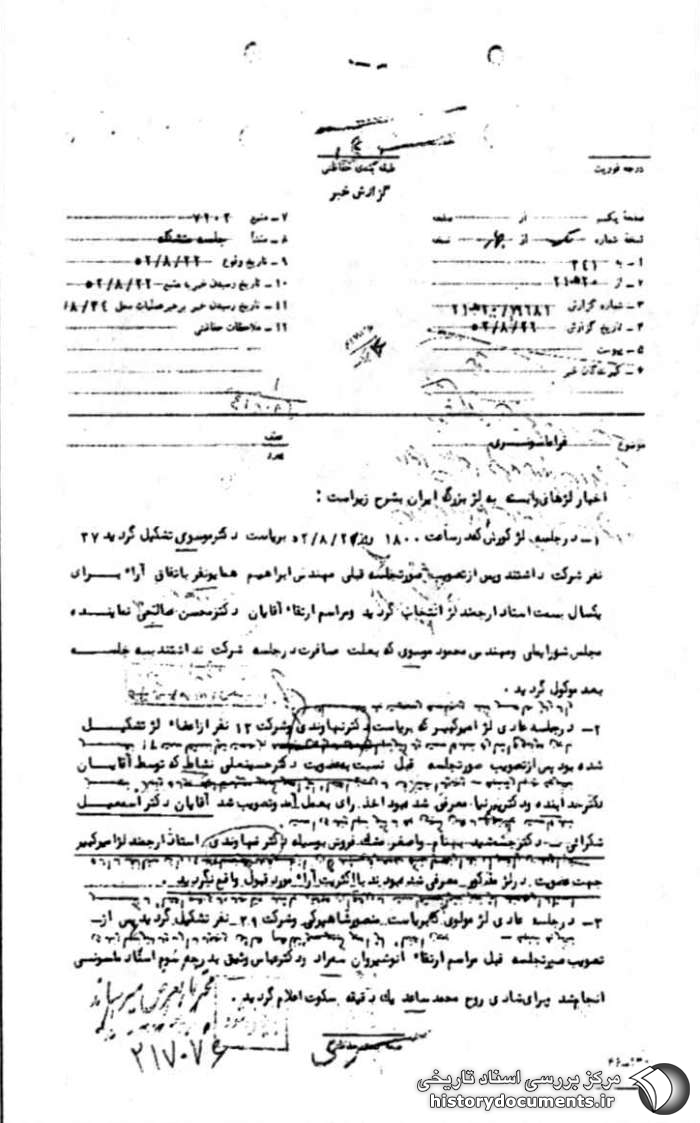 درجه فوریت
طبقه بندی حفاظتی
گزارش خبر
صفحه یکم از صفحه
نسخه شماره یک از چهار نسخه
۱ - به ۳۴۱
۲ - از ۲۱هـ۲۰
۳ - شماره گزارش
۴ - تاریخ گزارش ۵۲/۸/۲۶
۵ - پیوست
۶ - گیرندگان خبر
۷ - منبع ۷۲۰۲
۸ - منشأ جلسه متشکله
۹ - تاریخ وقوع ۵۲/۸/۲۲
۱۰ - تاریخ رسیدن خبر به منبع ۵۲/۸/۲۲
۱۱ - تاریخ رسیدن خبر برهبر عملیات محل
۱۲ - ملاحظات حفاظتی
موضوع فراماسونری
عطف
پیرو
اخبار لژهای وابسته به لژ بزرگ ایران بشرح زیر است :
۱- در جلسه لژ کورش که در ساعت ۱۸۰۰ روز بریاست دکتر موسوی تشکیل گردید ۳۷
نفر شرکت داشتند و پس از تصویب صورتجلسه قبلی مهندس ابراهیم همایونفر باتفاق آراء برای
یکسال بسمت استاد ارجمند لژ انتخاب گردید و مراسم ارتقاء آقایان دکتر محسن صالحی نماینده
مجلس شورایملی و مهندس محمود موسوی که بعلت مسافرت در جلسه شرکت نداشتند به جلسه
بعد موکول گردید .
۲- در جلسه عادی لژ امیرکبیر که بریاست دکتر نهاوندی و شرکت ۱۲ نفر از اعضاء لژ تشکیل
شده بود پس از تصویب صورتجلسه قبل نسبت بعضویت دکتر حسینعلی نشاط که توسط آقایان
دکتر حد آینده و دکتر برنیا معرفی شده بود اخذ رای بعمل آمد و تصویب شد آقایان دکتر اسمعیل
شکرائی - دکتر جمشید بهنام و اصغر مشک فروش بوسیله دکتر نهاوندی استاد ارجمند لژ امیرکبیر
جهت عضویت در لژ مذکور معرفی شده بودند با اکثریت آراء مورد قبول واقع نگردید .
۳- در جلسه عادی لژ مولوی که بریاست منصور شاهپرکی و شرکت ۳۹ نفر تشکیل گردید پس از
تصویب صورتجلسه قبل مراسم ارتقاء انوشیروان سمراد و دکتر عباس وثیق بدرجه سوم استاد ماسونی
انجام شد و برای شادی روح محمد ساعد یک دقیقه سکوت اعلام گردید .
۲۱۷۰۷۶
مرکز بررسی اسناد تاریخی
historydocuments.ir